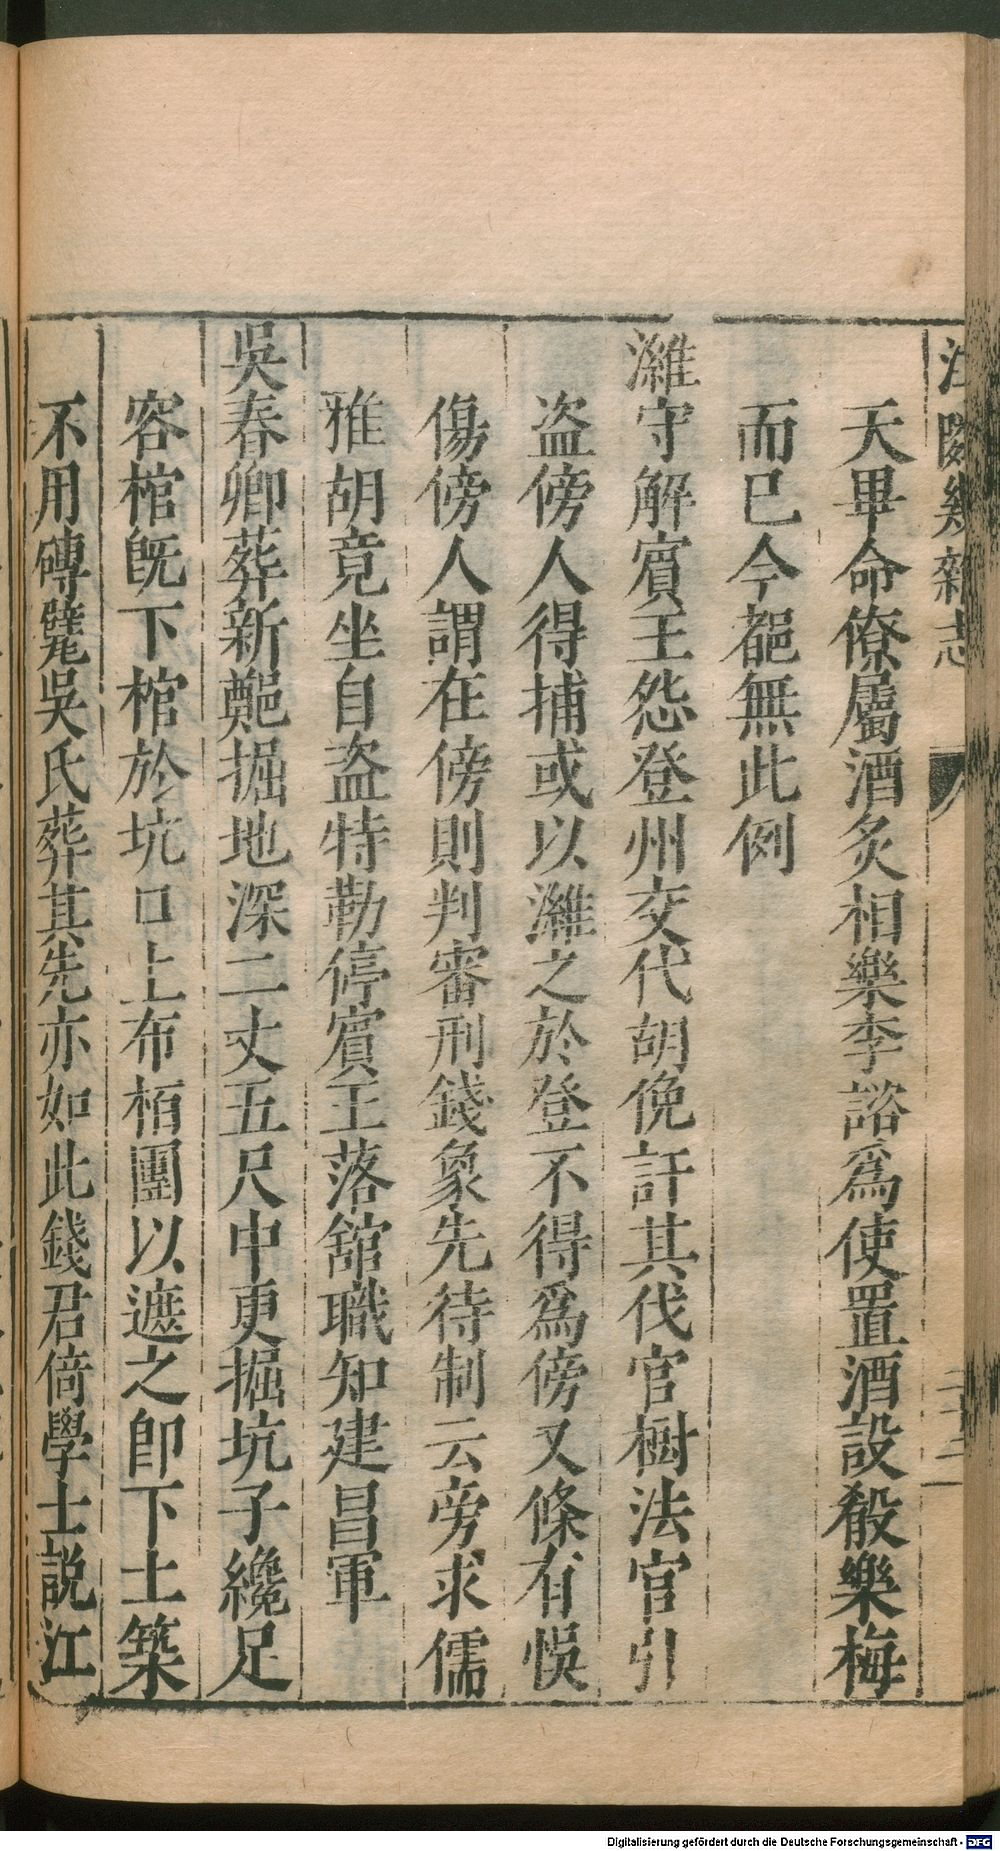 天畢命僚屬酒炙相樂李諮爲使置酒設殽樂梅
而巳今都無此例
濰守解賔王怨登州交代胡俛訐其伐官樹法官引
盗傍人得捕或以濰之於登不得爲傍又條有悞
傷傍人謂在傍則判審刑錢象先待制云旁求儒
雅胡竟坐自盗特勒停賔王落舘職知建昌軍
吳春卿葬新鄭掘地深二丈五尺中更掘坑子纔足
容棺旣下棺於坑口上布栢團以遮之卽下土築
不用磚甓吳氏葬其先亦如此錢君倚學士説江
Digitalisierung gefördert durch die Deutsche Forschungsgemeinschaft - DFG